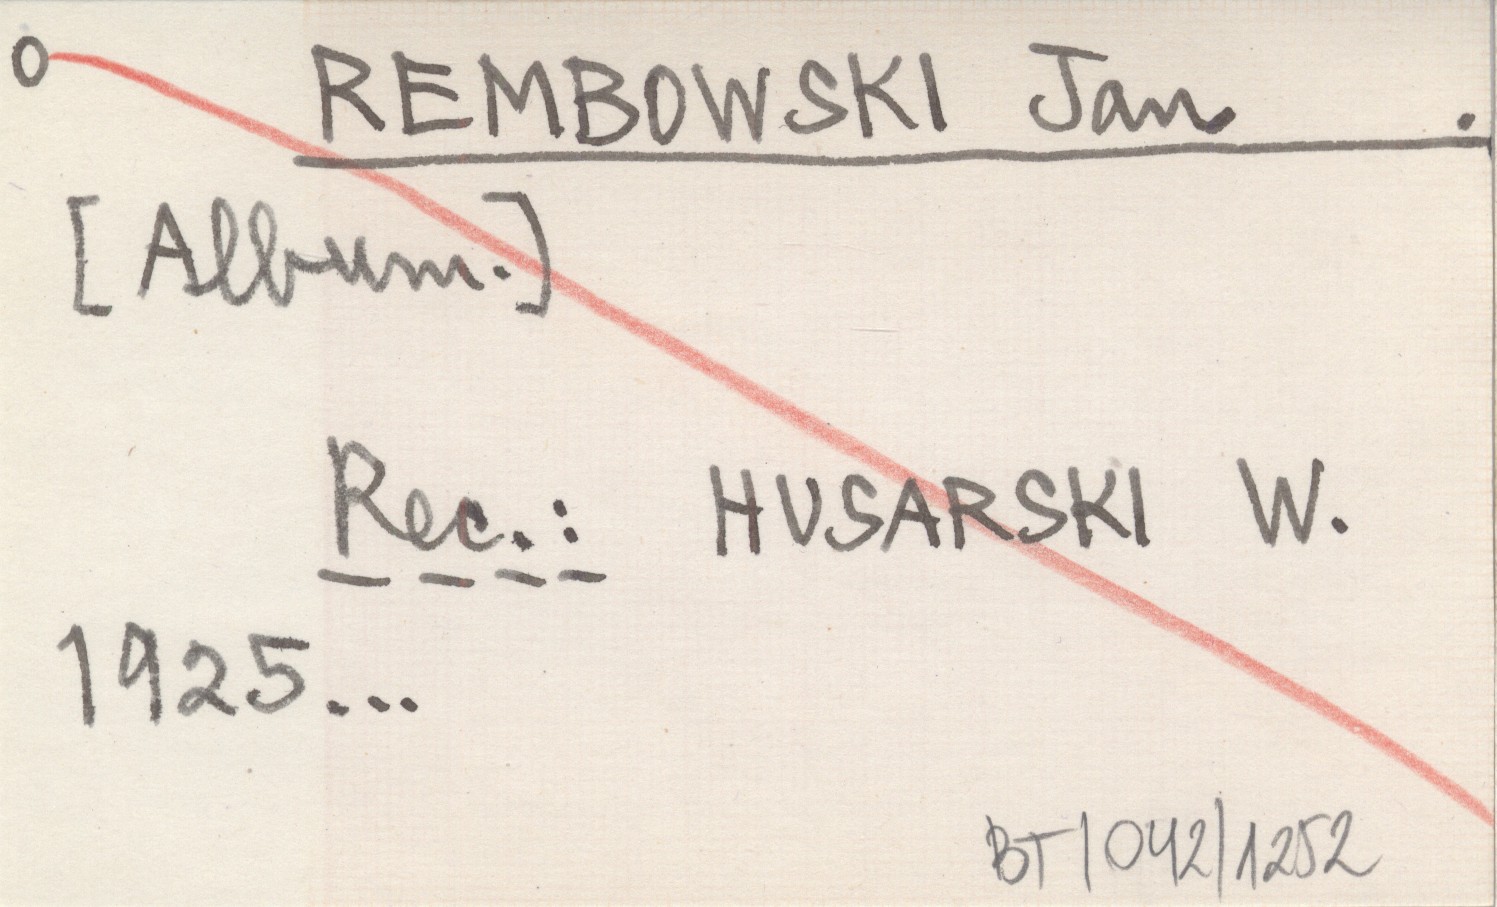 O REMBOWSKI Jan .
[Album.]
Rec.: HUSARSKI W.
1925...
BT/042/1252